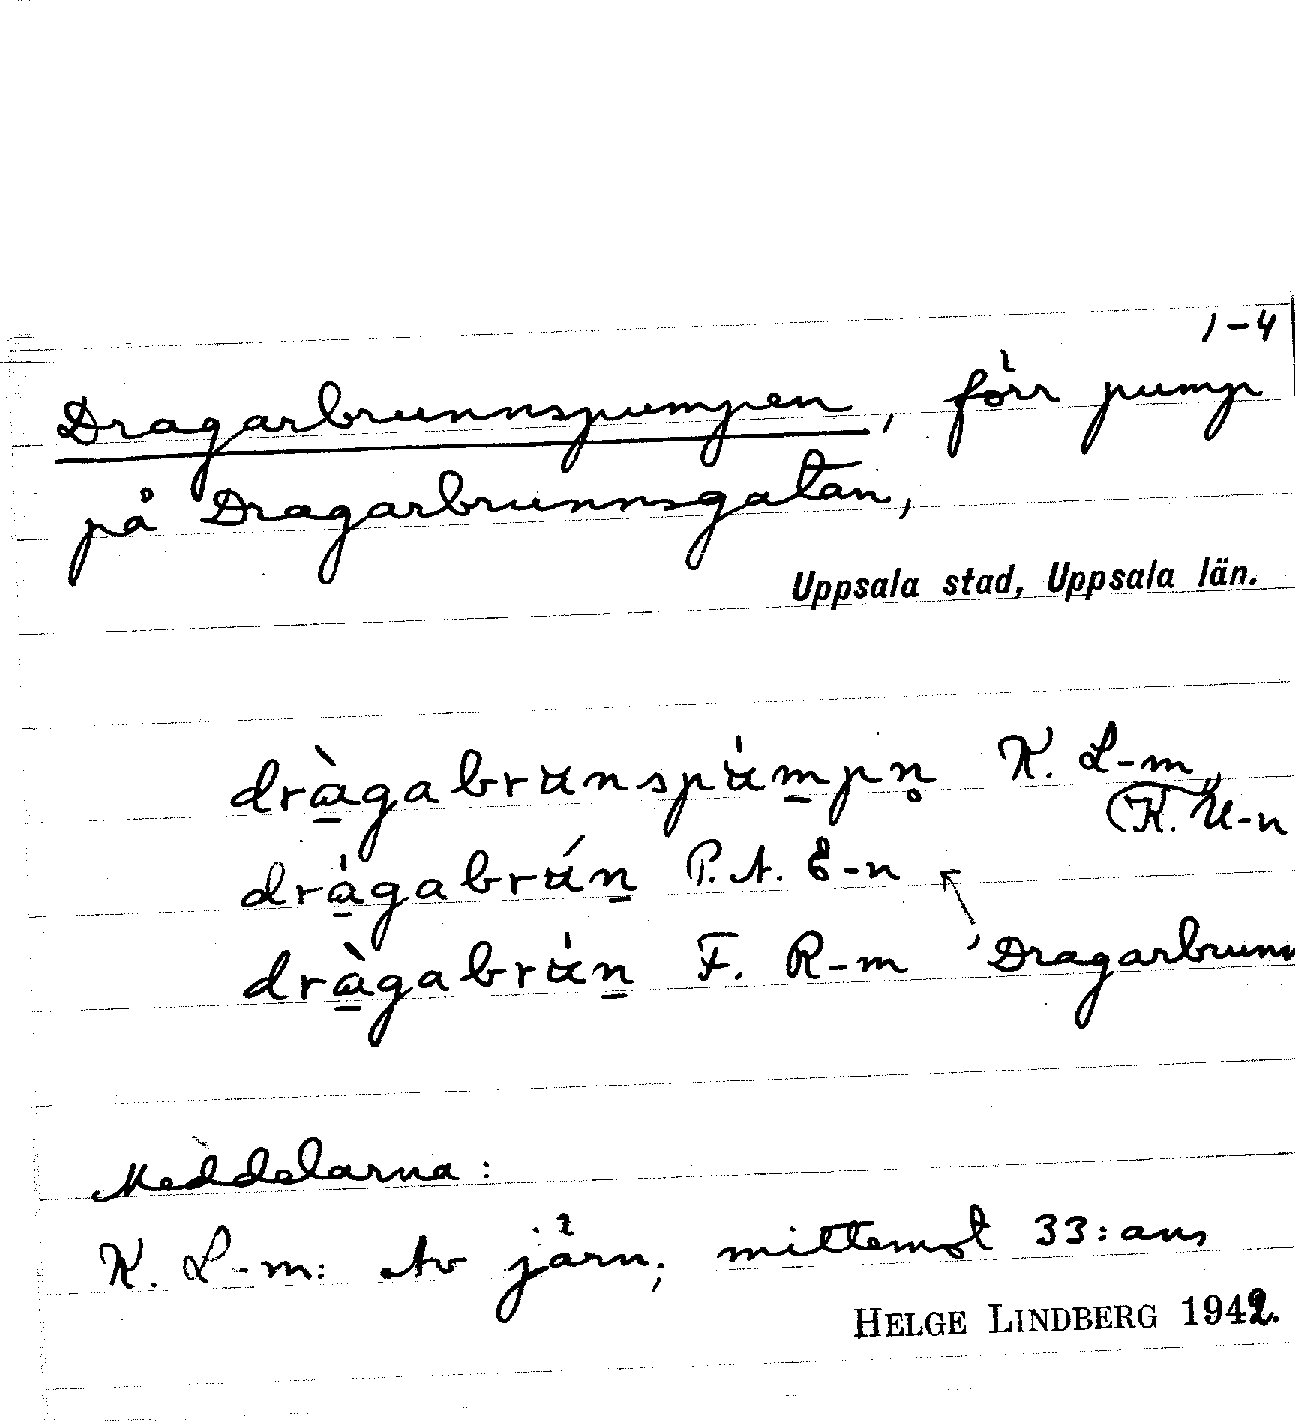 1-4
Dragarbrunnspumpen, förr pump
på Dragarbrunnsgatan,
Uppsala stad, Uppsala län.
dràgabrʉnspʉ́mpn̥ K. L-m,
(K. U-n
drágabrʉ́n P. A. E-n
dràgabrʉ́n F. R-m 'Dragarbrunn
Meddelarna:
K. L-m: Av järn, mittemot 33:ans
HELGE LINDBERG 1942.